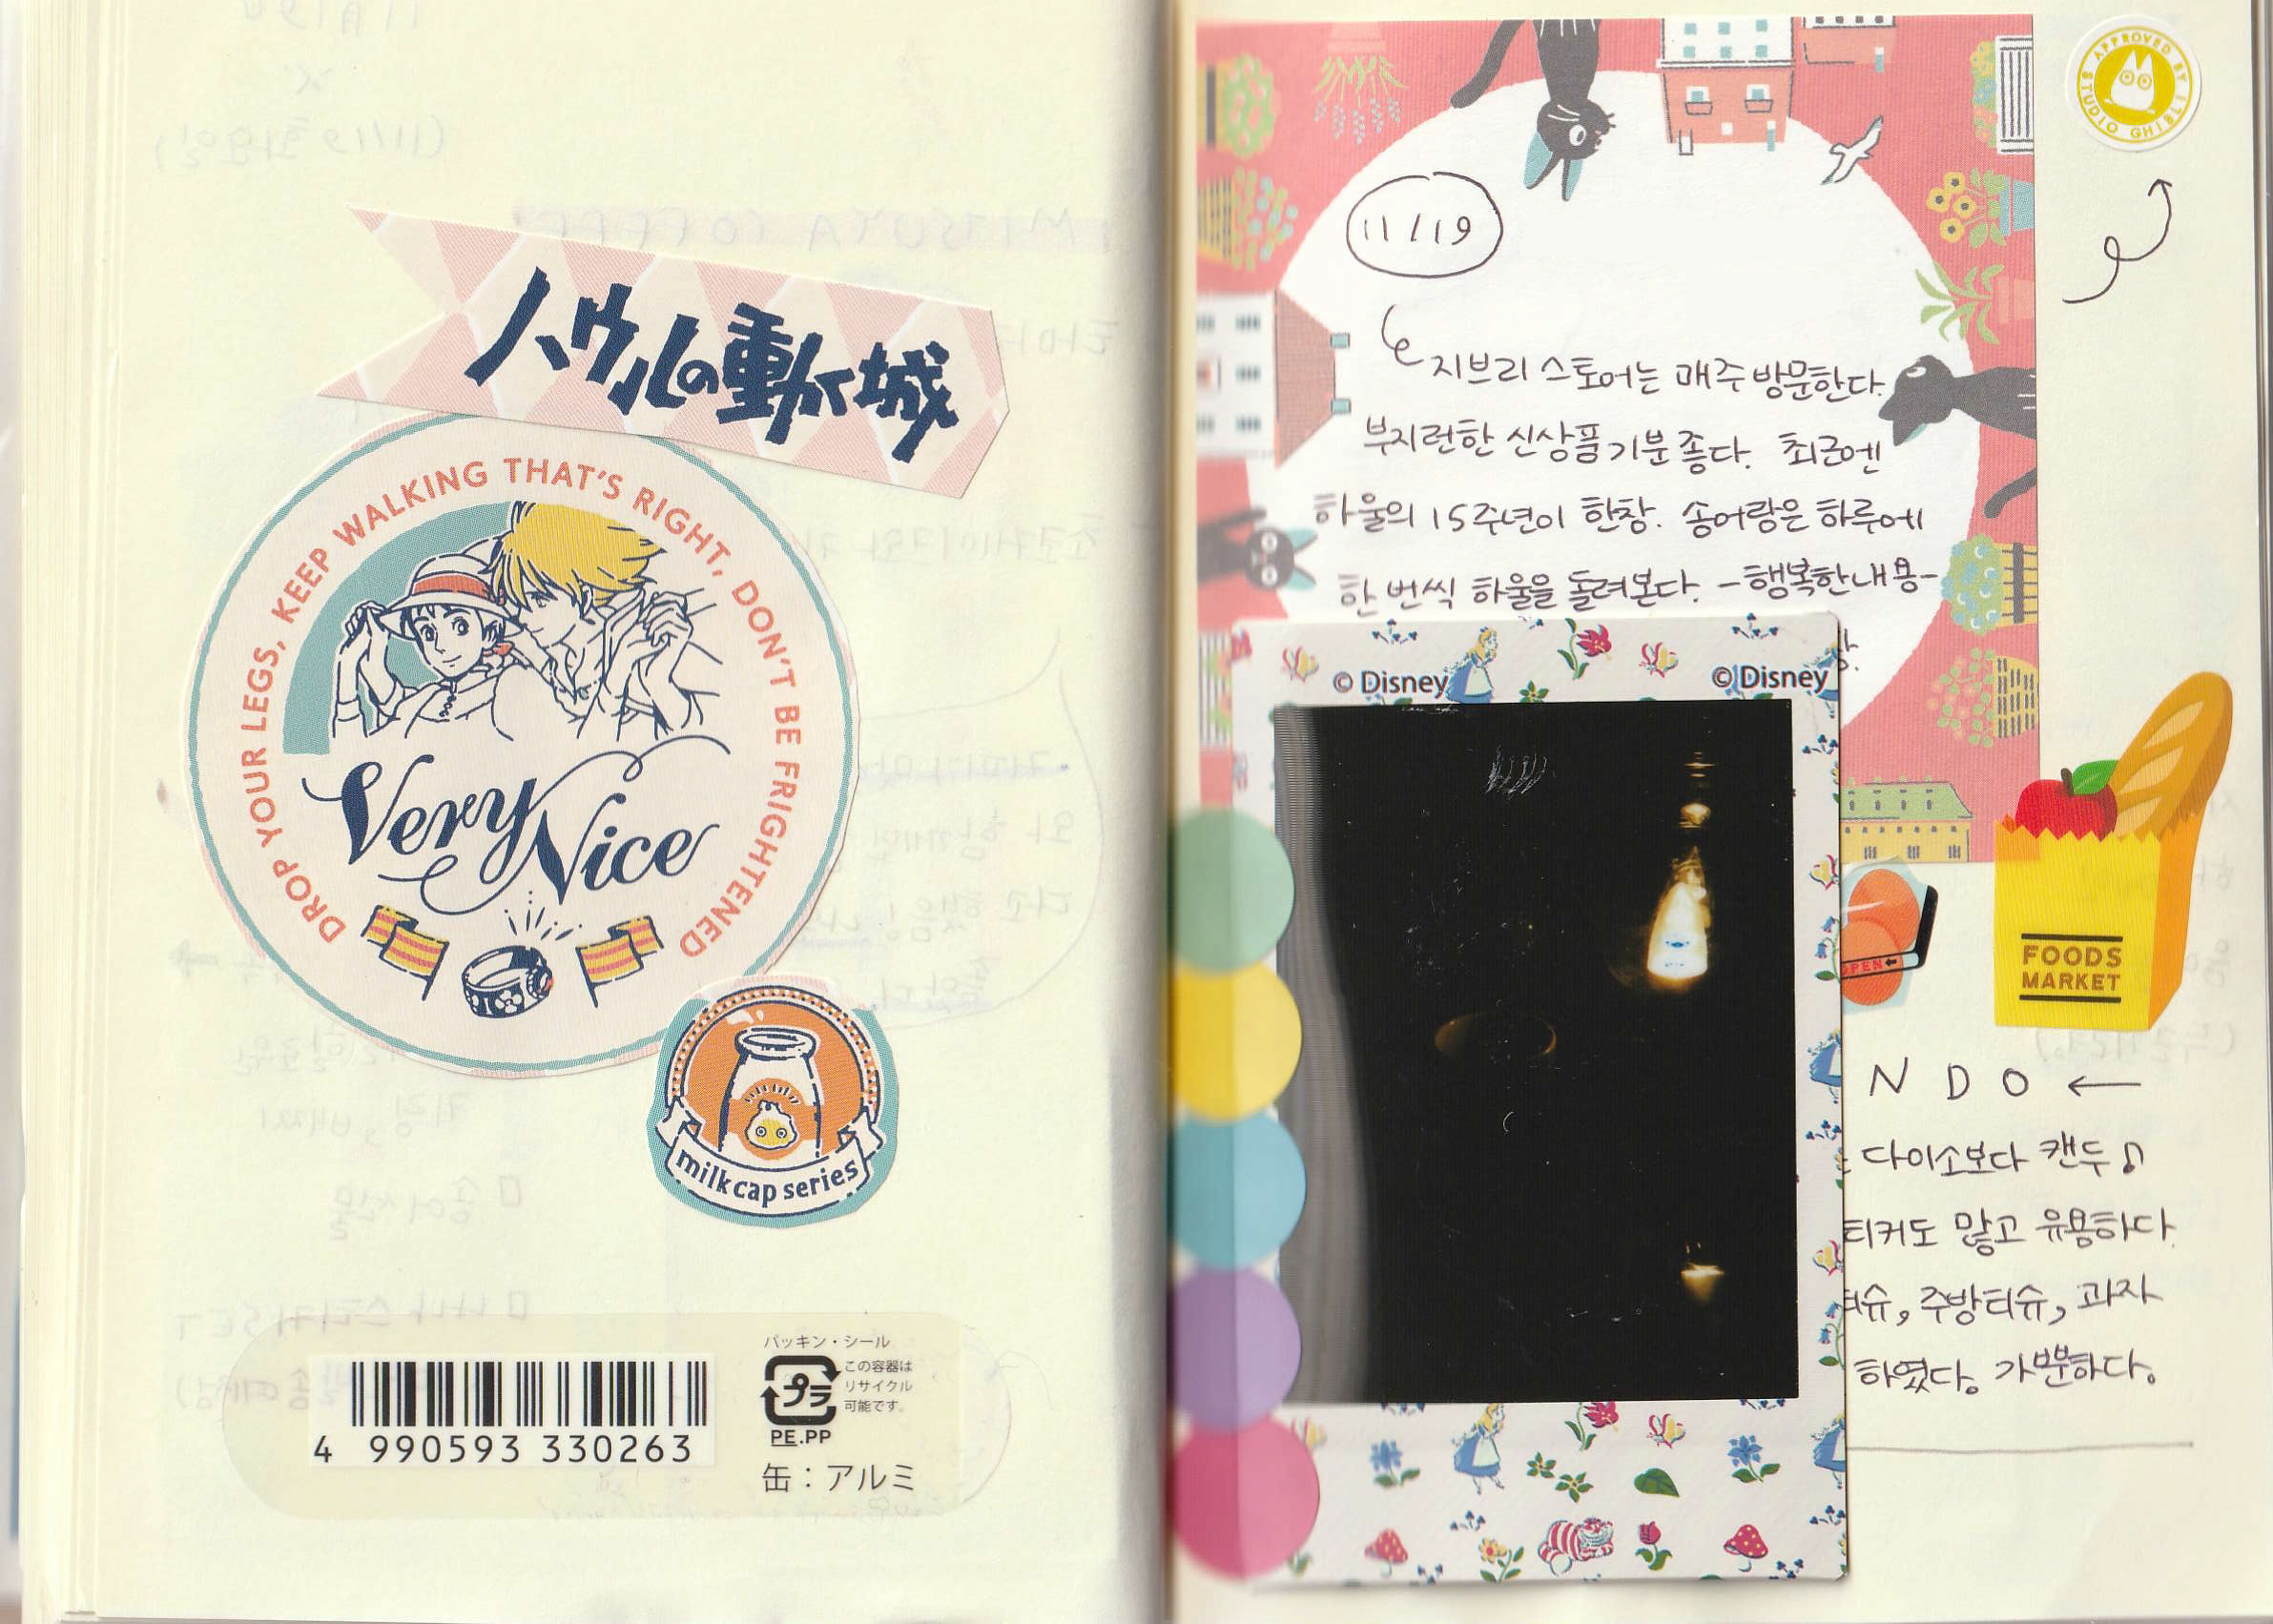 ハウルの動く城
DROP YOUR LEGS, KEEP WALKING THAT'S RIGHT, DON'T BE FRIGHTENED
Very Nice
milk cap series
4 990593 330263
パッキン・シール
プラ
PE.PP
この容器は
リサイクル
可能です。
缶：アルミ
APPROVED BY STUDIO GHIBLI
11/19
지브리 스토어는 매주 방문한다.
부지런한 신상품 기분 좋다. 최근엔
하울의 15주년이 한창. 송어랑은 하루에
한 번씩 하울을 돌려본다. -행복한 내용-
© Disney © Disney
OPEN
FOODS
MARKET
N D O ←
다이소보다 캔두♪
티커도 많고 유용하다.
티슈, 주방티슈, 과자
하였다. 가뿐하다.